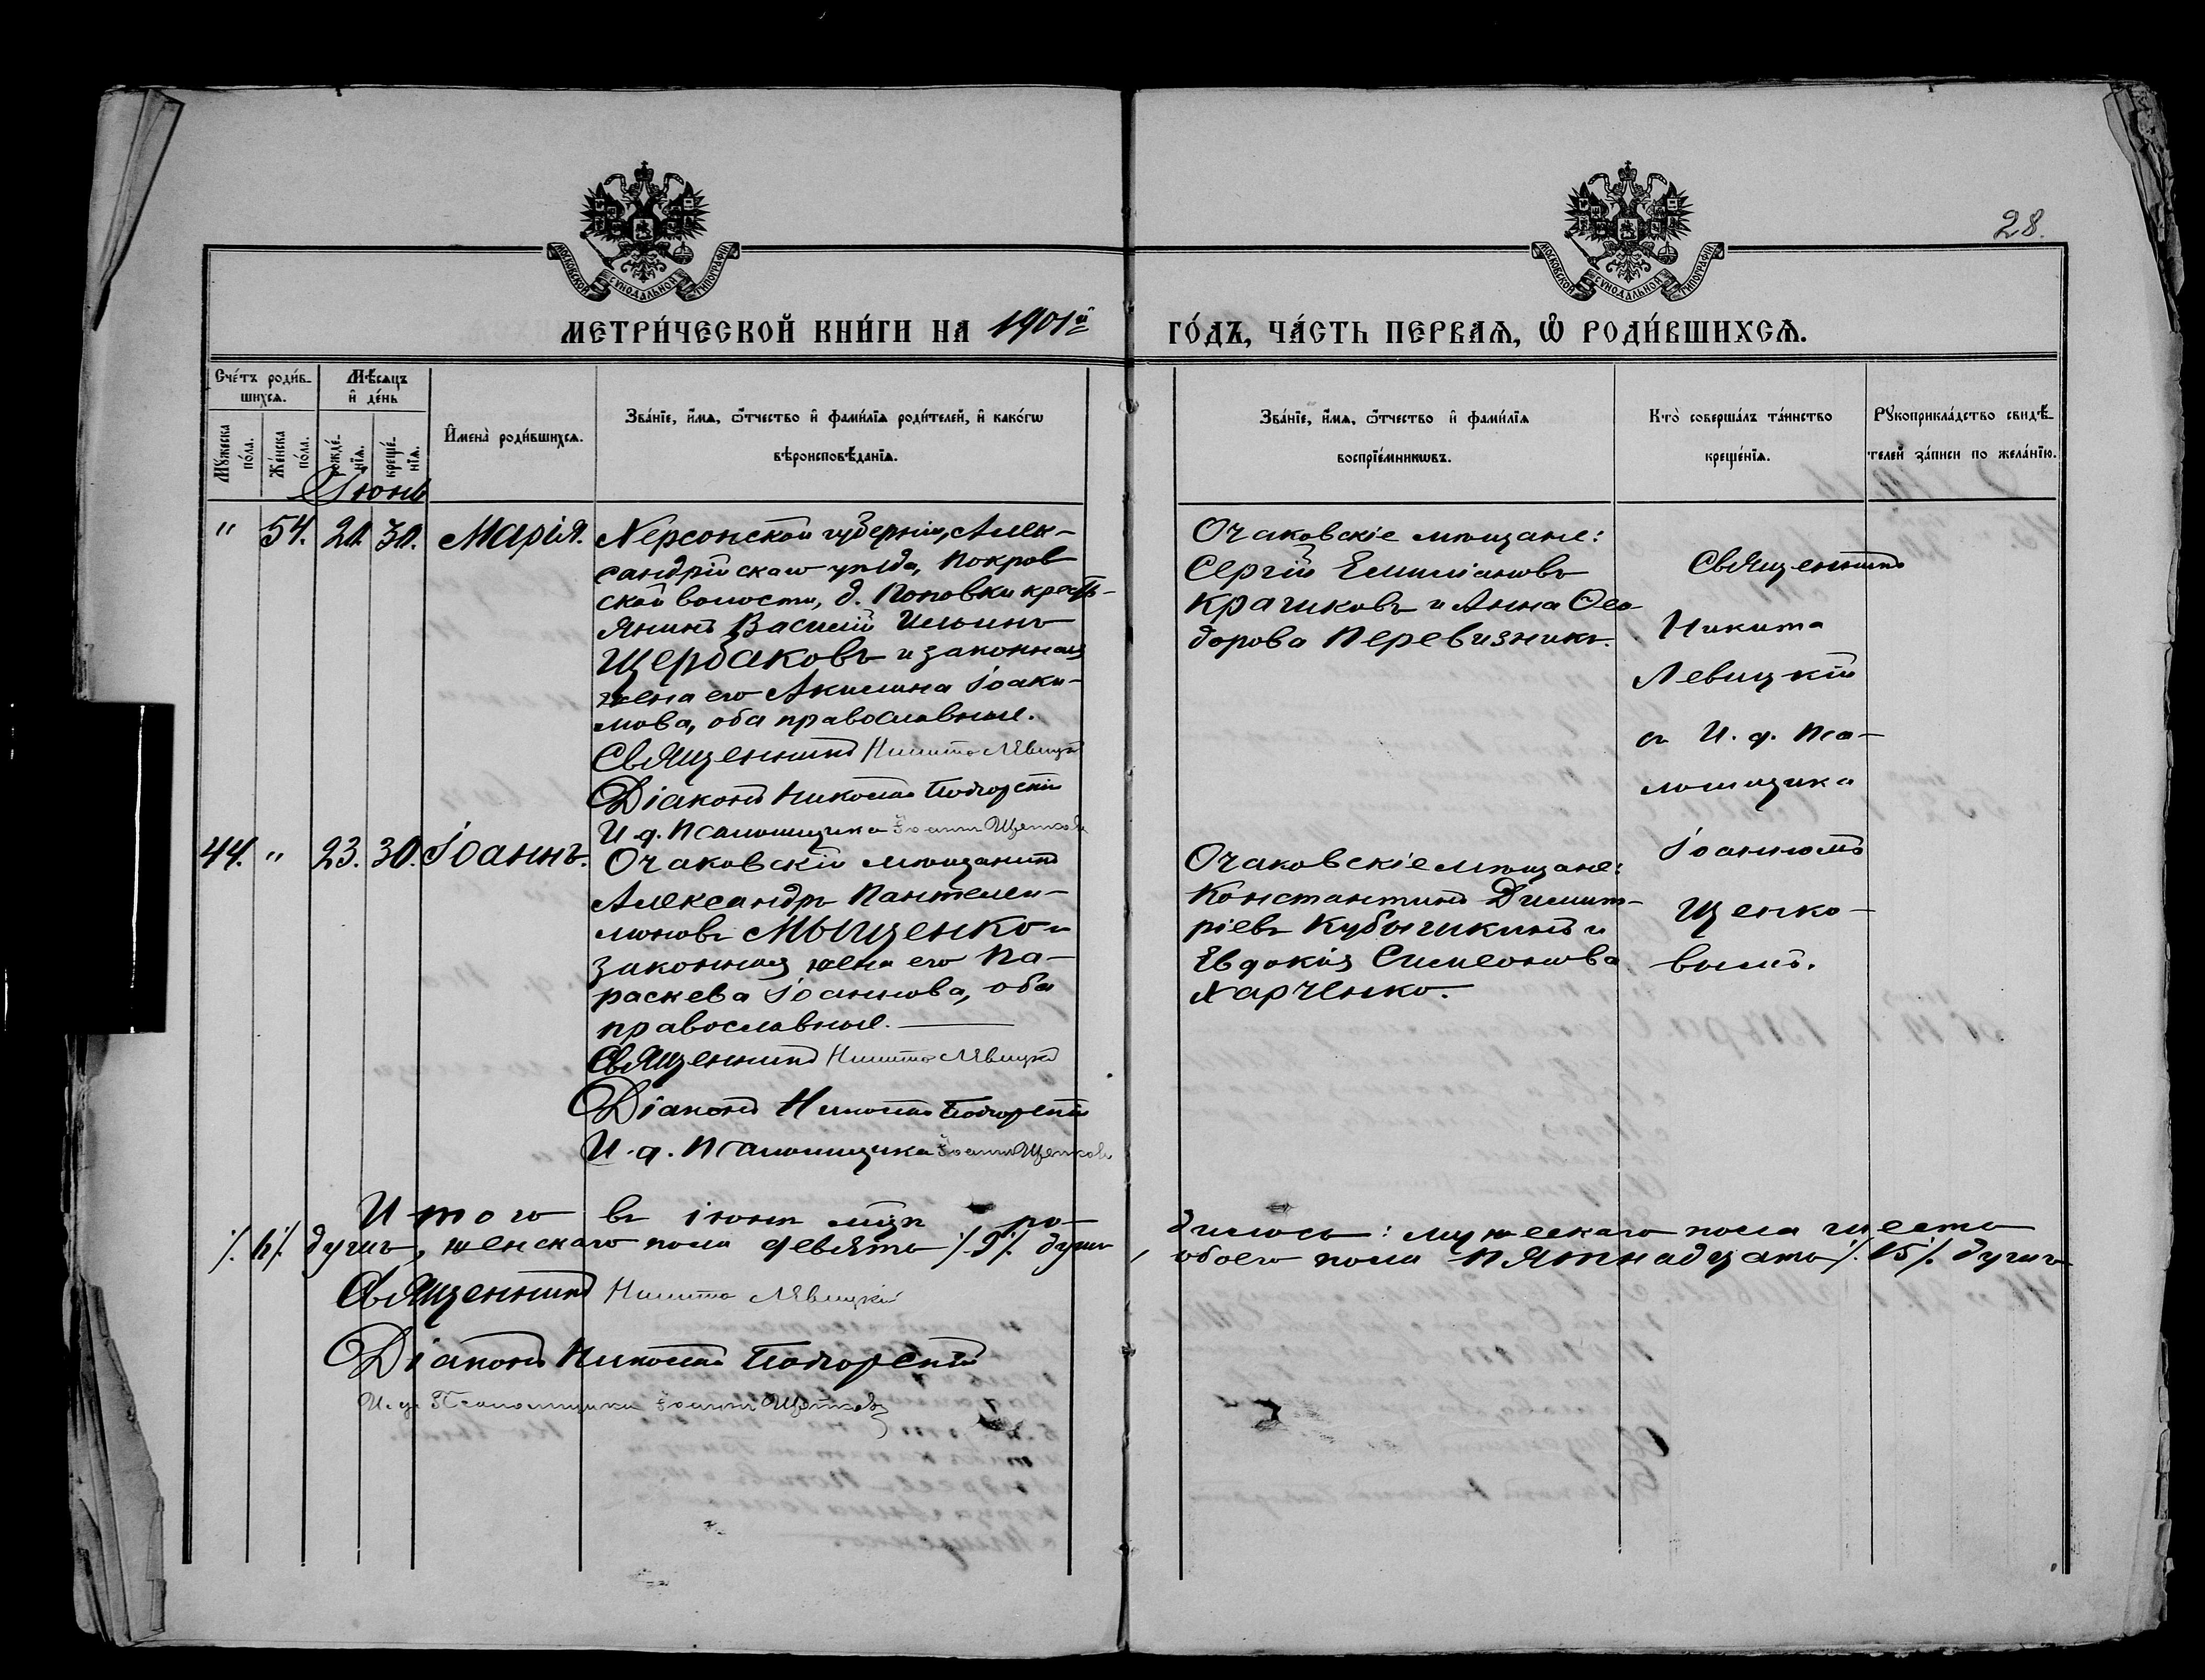 28.
МОСКОВСКОЙ СѴНОДАЛЬНОЙ ТИПОГРАФІИ
МОСКОВСКОЙ СѴНОДАЛЬНОЙ ТИПОГРАФІИ
МЕТРИ́ЧЕСКОЙ КНИ́ГИ НА 1901й ГО́ДЪ, ЧА́СТЬ ПЕРВАѦ, Ѡ РОДИ́ВШИХСѦ.
Сче́тъ роди́в-
шихсѧ.
Мѣ́сѧцъ
и҆ де́нь
Мꙋ́жеска
по́ла.
Же́нска
по́ла.
рожде́-
нїѧ.
креще́-
нїѧ.
И҆мена̀ роди́вшихсѧ.
Зва́нїе, и҆́мѧ, ѻ҆́тчество и҆ фами́лїѧ роди́телей, и҆ како́гѡ
вѣроисповѣ́данїѧ.
Зва́нїе, и҆́мѧ, ѻ҆́тчество и҆ фами́лїѧ
воспрїе́мникѡвъ.
Кто̀ соверша́лъ та́инство
креще́нїѧ.
Рꙋкоприкла́дство свидѣ́-
телей за́писи по жела́нїю.
Іюнь
" 54. 20. 30. Марія.
Херсонской губерніи, Алек-
сандрійскаго уѣзда, Покров
ской волости, д. Поповки кресть-
янинъ Василій Ильинъ
Щербаковъ и законная
жена его Акилина Іоаки-
мова, оба православные.
Священникъ Никита Левицкій
Діаконъ Николай Подгорскій
И. д. Псаломщика Іоаннъ Щепковъ
Очаковскіе мѣщане:
Сергій Емиліановъ
Крачиковъ и Анна Ѳео-
дорова Перевизникъ.
Священникъ
Никита
Левицкій
съ И. д. Пса-
ломщика
Іоанномъ
Щепко-
вымъ.
44. " 23. 30. Іоаннъ.
Очаковскій мѣщанинъ
Александръ Пантелеи-
моновъ Мыщенко и
законная жена его Па-
раскева Іоаннова, оба
православные.
Священникъ Никита Левицкій
Діаконъ Николай Подгорскій
И. д. Псаломщика Іоаннъ Щепковъ
Очаковскіе мѣщане:
Константинъ Димит-
ріевъ Кубышкинъ и
Евдокія Симеонова
Харченко.
Итого въ іюнѣ мцѣ ро-дилось: мужескаго пола шесть
/. 6 /. душъ, женскаго пола девять /. 9 /. душъ, обоего пола пятнадцать /. 15 /. душъ
Священникъ Никита Левицкій
Діаконъ Николай Подгорскій
И. д. Псаломщика Іоаннъ Щепковъ